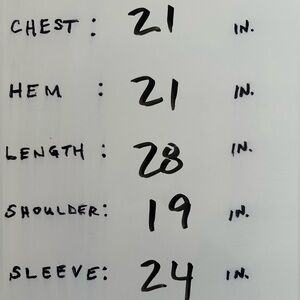 CHEST: 21 IN.
HEM : 21 IN.
LENGTH : 28 IN.
SHOULDER: 19 IN.
SLEEVE: 24 IN.